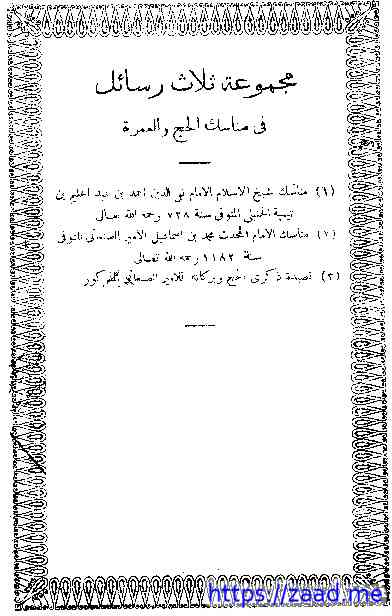 مجموعة ثلاث رسائل
فى مناسك الحج والعمرة
(١) مناسك شيخ الاسلام الامام تقى الدين احمد بن عبد الحليم بن
تيمية الحنبلى المتوفى سنة ٧٢٨ رحمه الله تعالى
(٢) مناسك الامام المحدث محمد بن اسماعيل الامير الصنعانى المتوفى
سنة ١١٨٢ رحمه الله تعالى
(٣) قصيدة ذكرى الحج وبركاته للامير الصنعانى المذكور
https://zaad.me